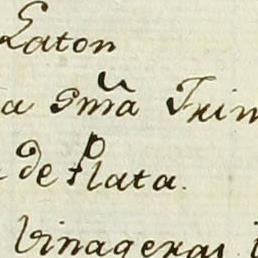 Laton
a Sma Trin
de Plata.
Vinageras